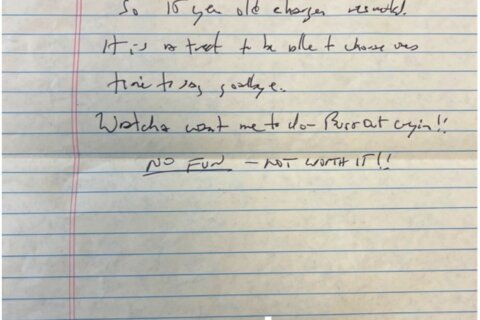 So 15 year old charges resulted.
It is a treat to be able to choose ones
time to say goodbye.
Watcha want me to do – Bust out cryin!!
NO FUN – NOT WORTH IT!!